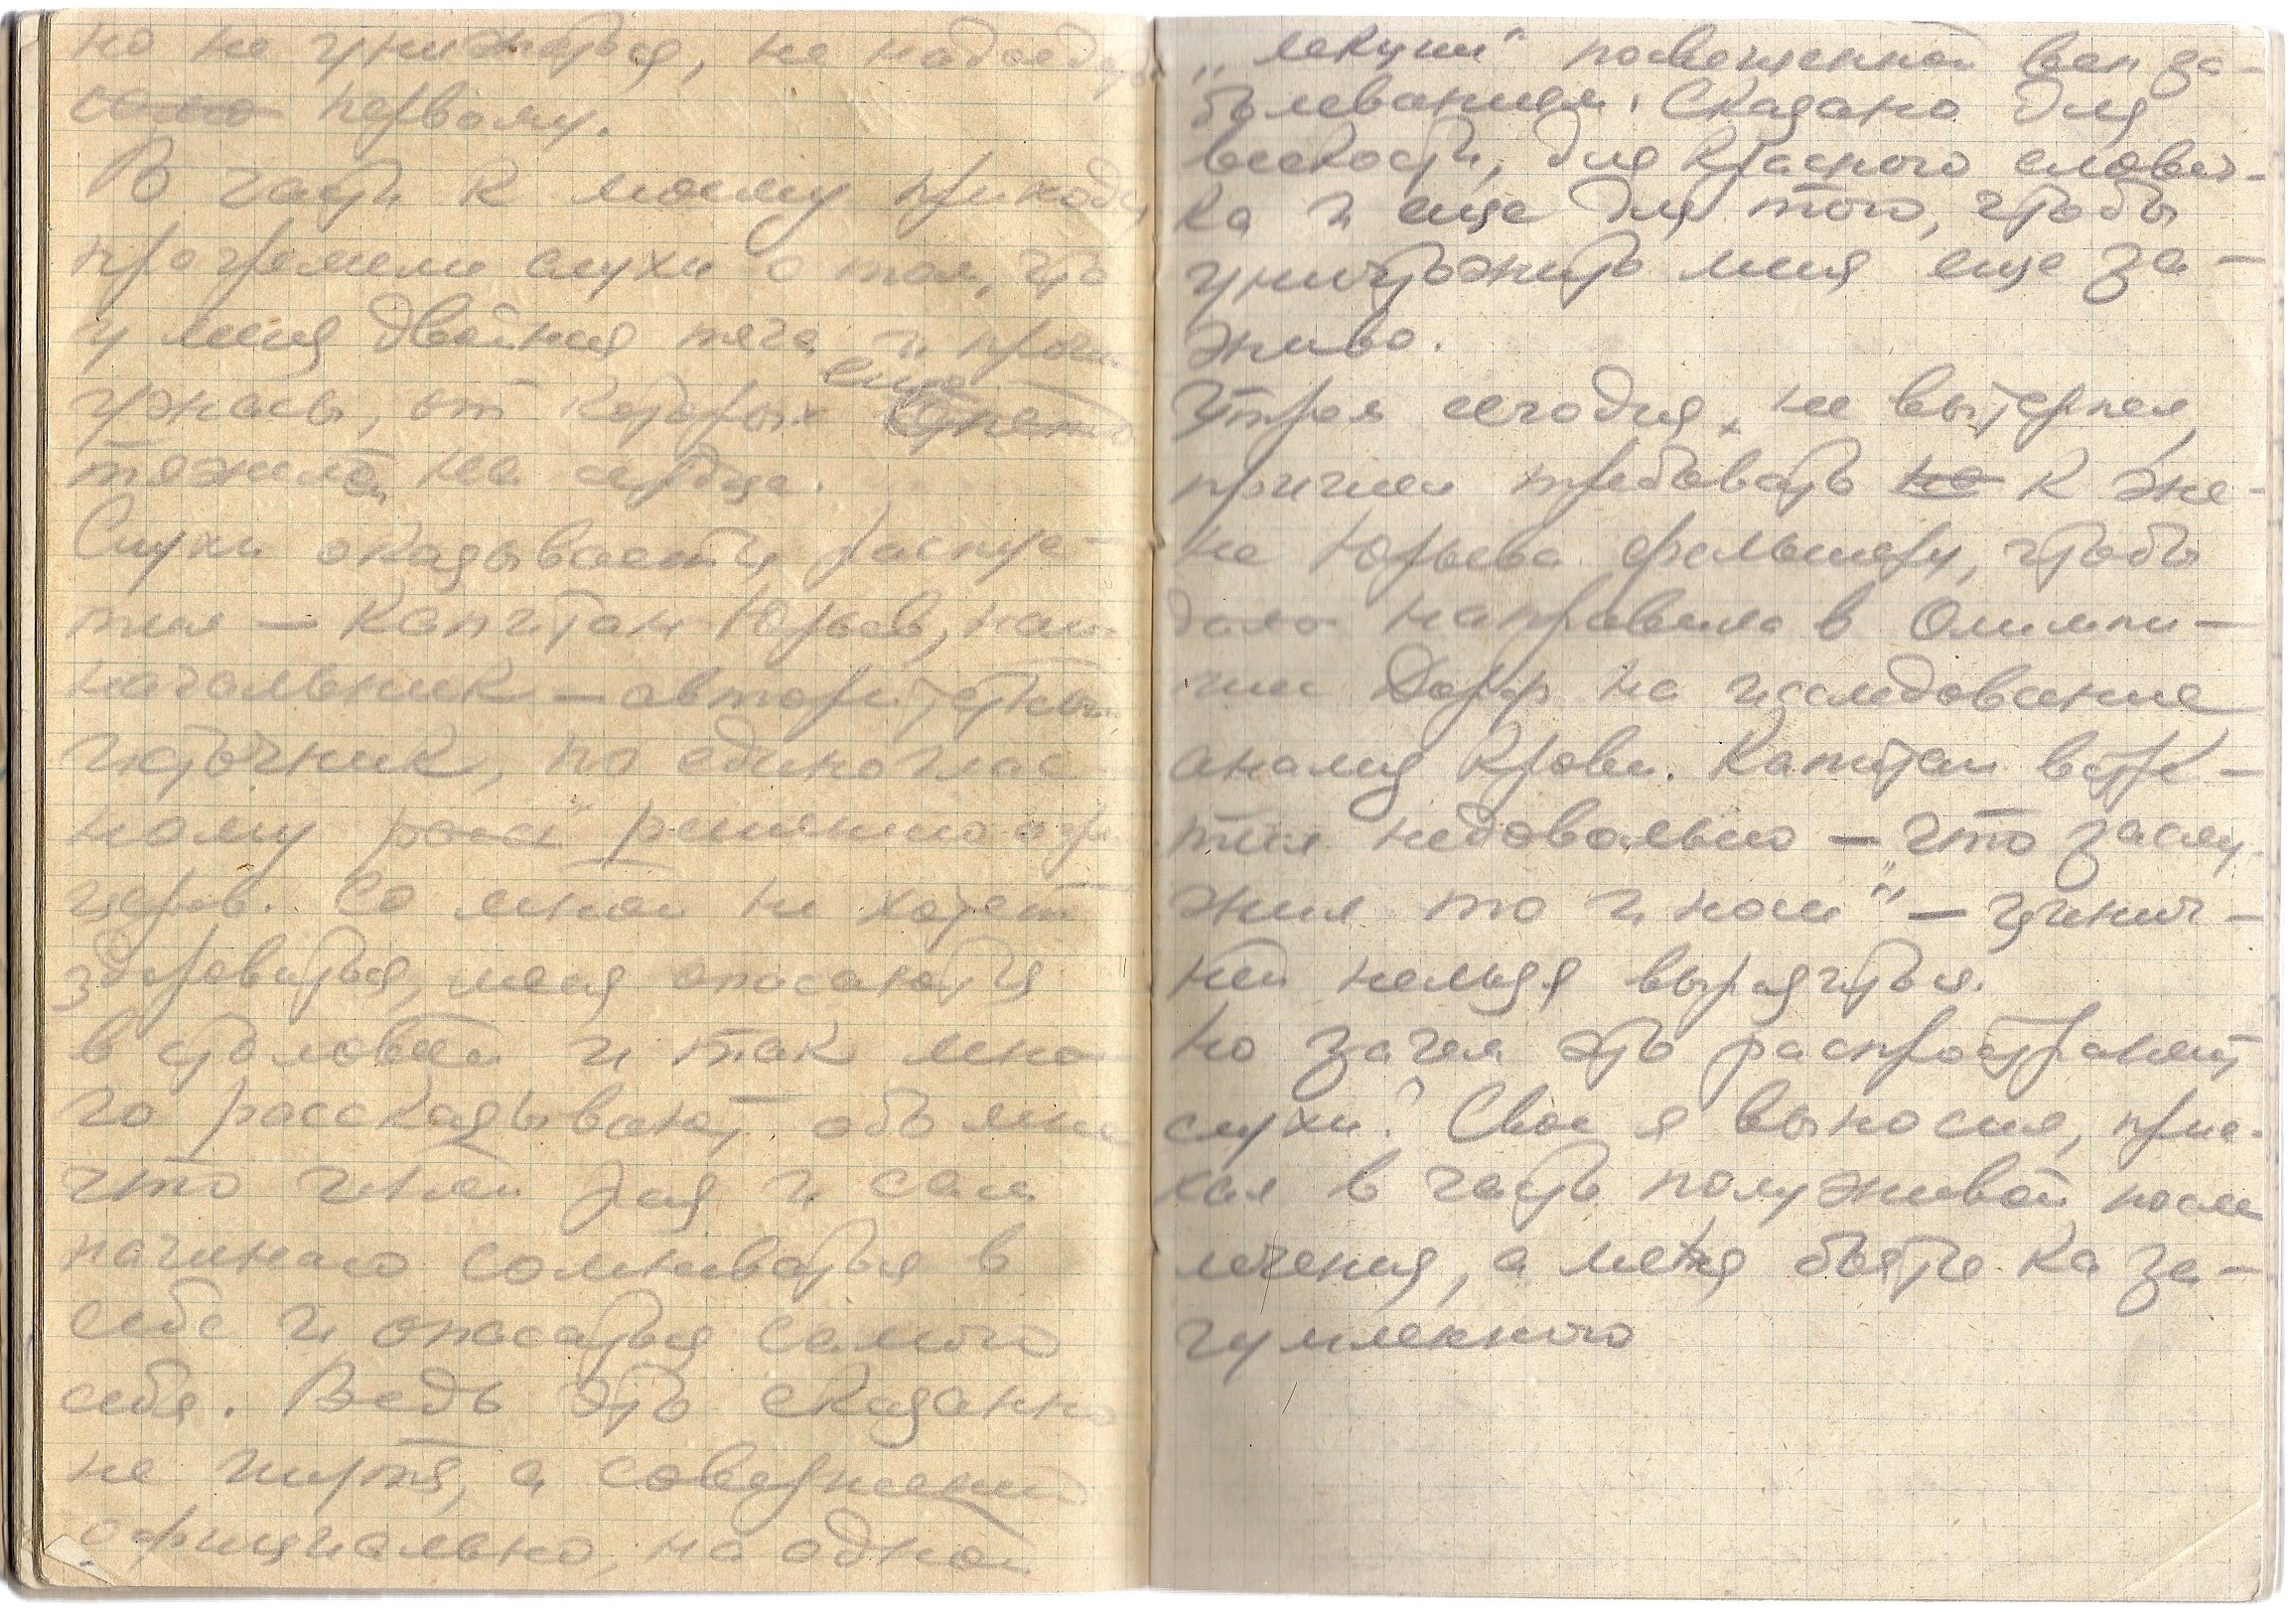 но не унижаться, не надоедать
само первому.
В части к моему приходу
прогремели слухи о том, что
у меня двойная тяга и проч.
ужасы, от которых еще
тяжелей на сердце.
Слухи оказывается, распус-
тил — капитан Юрьев, наш
начальник — авторитетный
источник, по единоглас-
ному решению офи-
церов. Со мной не хотят
здороваться, меня опасаются
в столовой и так мно-
го рассказывают обо мне
что иной раз и сам
начинаю сомневаться в
себе и опасаться самого
себя. Ведь это сказанно
не шутя, а совершенно
официально, на одной
„лекции“ посвещенной вен за-
болеваниям. Сказано для
веskости, для красного словеч-
ка и еще для того, чтобы
уничтожить меня еще за-
живо.
Утром сегодня, не вытерпел,
пришел требовать но к же-
не Юрьева фельшеру, чтоб
дала направила в Олимпи-
ши Дорф на исследование
анализ крови. Капитан встре-
тил недовольно — „что заслу-
жил то и неси“ — цинич-
ней нельзя выразиться.
Но зачем это распространять
слухи? Свое я выносил, прие-
хал в часть полуживой после
лечения, а меня бьёте ка за-
чумленного